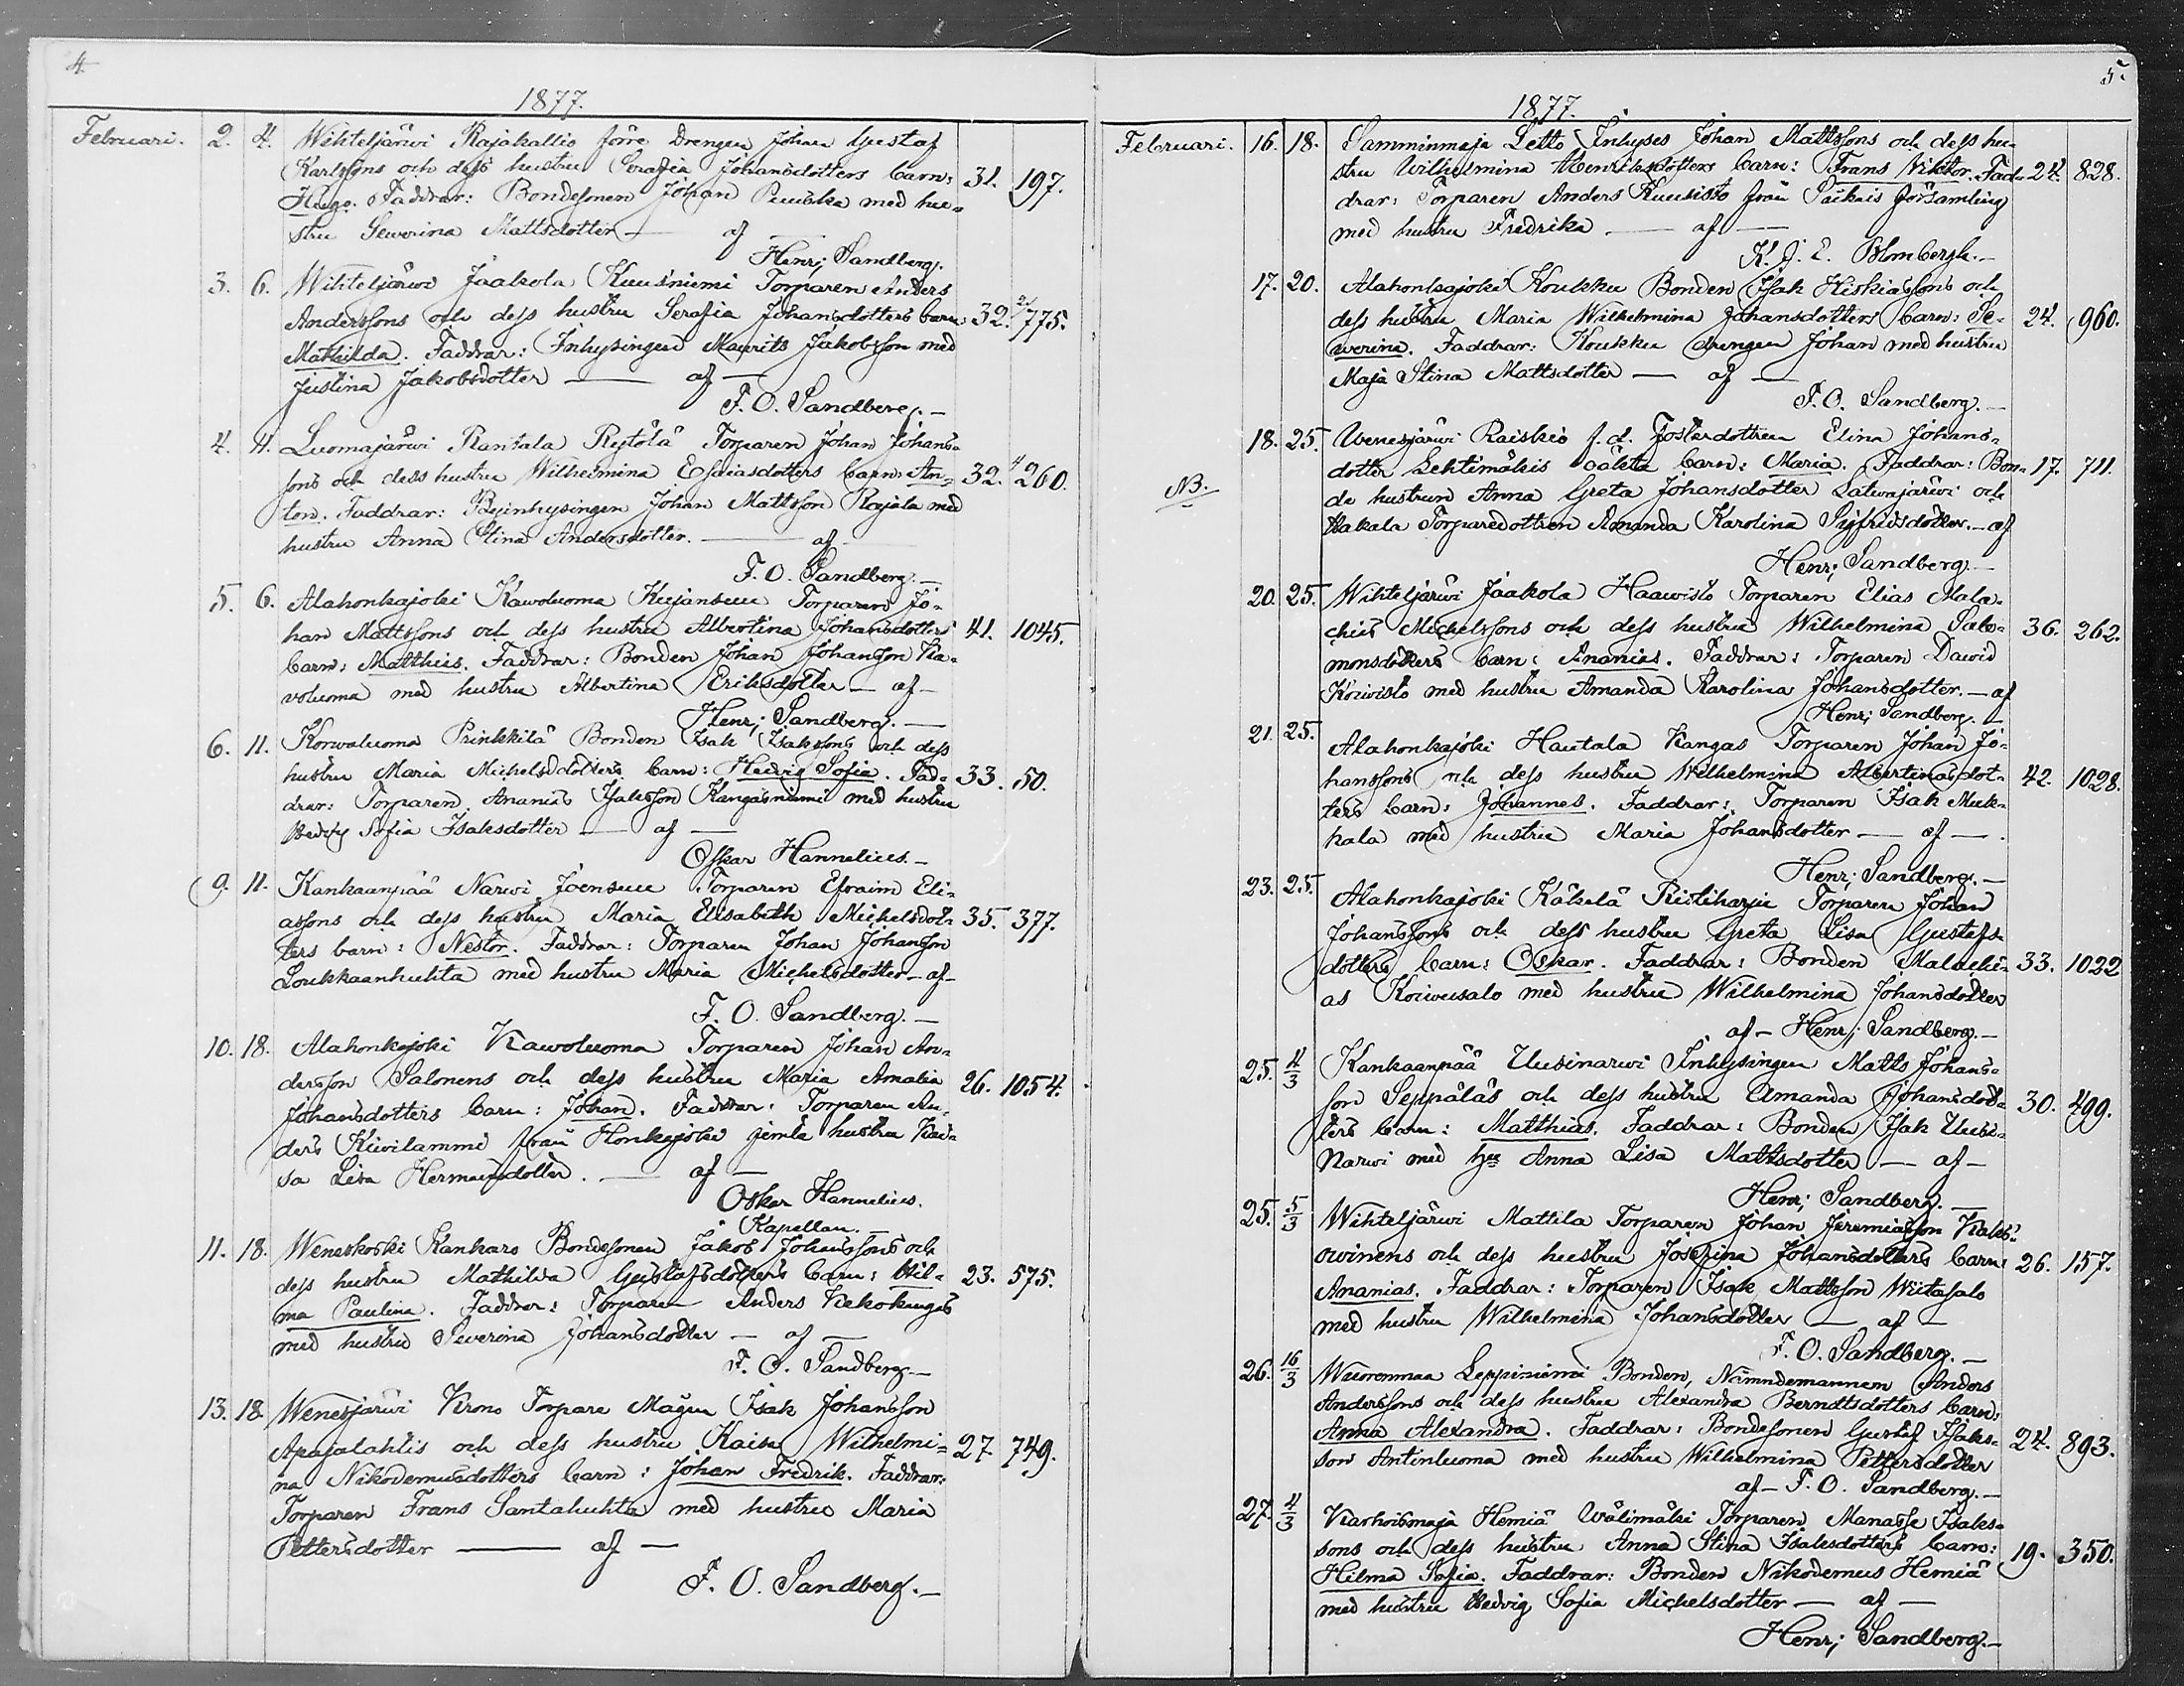 4.
1877.
Februari. 2. 4. Wihteljärwi Rajakallio förre Drengen Johan Gustaf
Karlssons och dess hustru Serafia Johansdotters barn: 31. 197.
Hugo. Faddrar: Bondesonen Johan med hu-
stru Sewerina Mattsdotter — af —
Henr; Sandberg.
3. 6. Wihteljärwi Jaakola Kuusniemi Torparen Anders
Anderssons och dess hustru Serafia Johansdotters barn: 32. 775.
Mathilda. Faddrar: Inhysingen Maurits Jakobsson med
Justina Jakobsdotter — af —
F. O. Sandberg. —
4. 11. Luomajärwi Rantala Rytölä Torparen Johan Johans-
sons och dess hustru Wilhelmina Esaiasdotters barn: An- 32. 260.
ton. Faddrar: Byinhysingen Johan Mattsson Rajala med
hustru Anna Stina Andersdotter. — af —
F. O. Sandberg. —
5. 6. Alahonkajoki Kawoluoma Kujansuu Torparen Jo-
han Mattssons och dess hustru Albertina Johansdotters 41. 1045.
barn: Matthias. Faddrar: Bonden Johan Johansson Ka-
voluoma med hustru Albertina Eriksdotter — af —
Henr; Sandberg. —
6. 11. Korwaluoma Prinkkilä Bonden Isak Isakssons och dess
hustru Maria Michelsdotters barn: Hedvig Sofia. Fad- 33. 50.
drar: Torparen Ananias Isaksson Kangasniemi med hustru
Hedvig Sofia Isaksdotter — af —
Oskar Hannelius. —
9. 11. Kankaanpää Narwi Joensuu Torparen Efraim Eli-
assons och dess hustru Maria Elisabeth Michelsdot- 35. 377.
ters barn: Nestor. Faddrar: Torparen Johan Johansson
Loukkaanhuhta med hustru Maria Michelsdotter — af —
F. O. Sandberg. —
10. 18. Alahonkajoki Kawoluoma Torparen Johan An-
dersson Salonens och dess hustru Maria Amalia 26. 1054.
Johansdotters barn: Johan. Faddrar: Torparen An-
ders Kiwilammi från Honkajoki jemte hustru Kai-
sa Lisa Hermansdotter. — af —
Oskar Hannelius.
Kapellan. —
11. 18. Weneskoski Kankare Bondesonen Jakob Johanssons och
dess hustru Mathilda Gustafsdotters barn: Hil- 23. 575.
ma Paulina. Faddrar: Torparen Anders Kekokangas
med hustru Severina Johansdotter — af —
F. O. Sandberg. —
13. 18. Wenesjärwi Krono Torpare Mågen Isak Johansson
Apajalahtis och dess hustru Kaisa Wilhelmi- 27. 749.
na Nikodemusdotters barn: Johan Fredrik. Faddrar:
Torparen Frans Santahuhta med hustru Maria
Pettersdotter — af —
F. O. Sandberg. —
5.
1877.
Februari. 16. 18. Samminmaja Letto Inhyses Johan Mattssons och dess hu-
stru Wilhelmina Henriksdotters barn: Frans Viktor. Fad- 24. 828.
drar: Torparen Anders Kuusisto från Påikais församling
med hustru Fredrika — af —
K. J. E. Blombergh. —
17. 20. Alahonkajoki Koukku Bonden Isak Hiskiassons och
dess hustru Maria Wilhelmina Johansdotters barn: Se- 24. 960.
werina. Faddrar: Koukku drengen Johan med hustru
Maja Stina Mattsdotter — af —
F. O. Sandberg. —
18. 25. Wenesjärwi Raiskio f. d. Fosterdottren Elina Johans-
dotter Lehtimäkis oäkta barn: Maria. Faddrar: Bon- 17. 711.
NB.
de hustrun Anna Greta Johansdotter Latwajärwi och
Hakala Torparedottren Amanda Karolina Sigfridsdotter. — af
Henr; Sandberg. —
20. 25. Wihteljärwi Jaakola Haawisto Torparen Elias Mala-
chias Michelssons och dess hustru Wilhelmina Salo- 36. 262.
monsdotters barn: Ananias. Faddrar: Torparen Dawid
Koiwisto med hustru Amanda Karolina Johansdotter. — af
Henr; Sandberg. —
21. 25. Alahonkajoki Hautala Kangas Torparen Johan Jo-
hanssons och dess hustru Wilhelmina Albertinasdot- 42. 1028.
ters barn: Johannes. Faddrar: Torparen Isak Muk-
kala med hustru Maria Johansdotter — af —.
Henr; Sandberg. —
23. 25. Alahonkajoki Kälsilä Ristiharju Torparen Johan
Johanssons och dess hustru Greta Lisa Gustafs-
dotters barn: Oskar. Faddrar: Bonden Malachi- 33. 1022
as Koiwusalo med hustru Wilhelmina Johansdotter
af — Henr; Sandberg. —
25. 4/3 Kankaanpää Uusinarwi Inhysingen Matts Johans-
son Seppäläs och dess hustru Amanda Johansdot- 30. 499.
ters barn: Matthias. Faddrar: Bonden Isak Uusi-
Narwi med hu Anna Lisa Mattsdotter — af —
Henr; Sandberg. —
25. 5/3 Wihteljärwi Mattila Torparen Johan Jeremiasson Kaks-
owinens och dess hustru Josefina Johansdotters barn: 26. 157.
Ananias. Faddrar: Torparen Isak Mattsson Wiitasalo
med hustru Wilhelmina Johansdotter — af —
F. O. Sandberg. —
26. 16/3 Wuorenmaa Leppiniemi Bonden, Nämndemannen Anders
Anderssons och dess hustru Alexandra Berndtsdotters barn:
Anna Alexandra. Faddrar: Bondesonen Gustaf Isaks- 24. 893.
son Antinluoma med hustru Wilhelmina Pettersdotter
af — F. O. Sandberg. —
27. 4/3 Karhoismaja Hemiä Wälimäki Torparen Manasse Isaks-
sons och dess hustru Anna Stina Isaksdotters barn: 19. 350.
Hilma Sofia. Faddrar: Bonden Nikodemus Hemiä
med hustru Hedvig Sofia Michelsdotter — af —
Henr; Sandberg. —